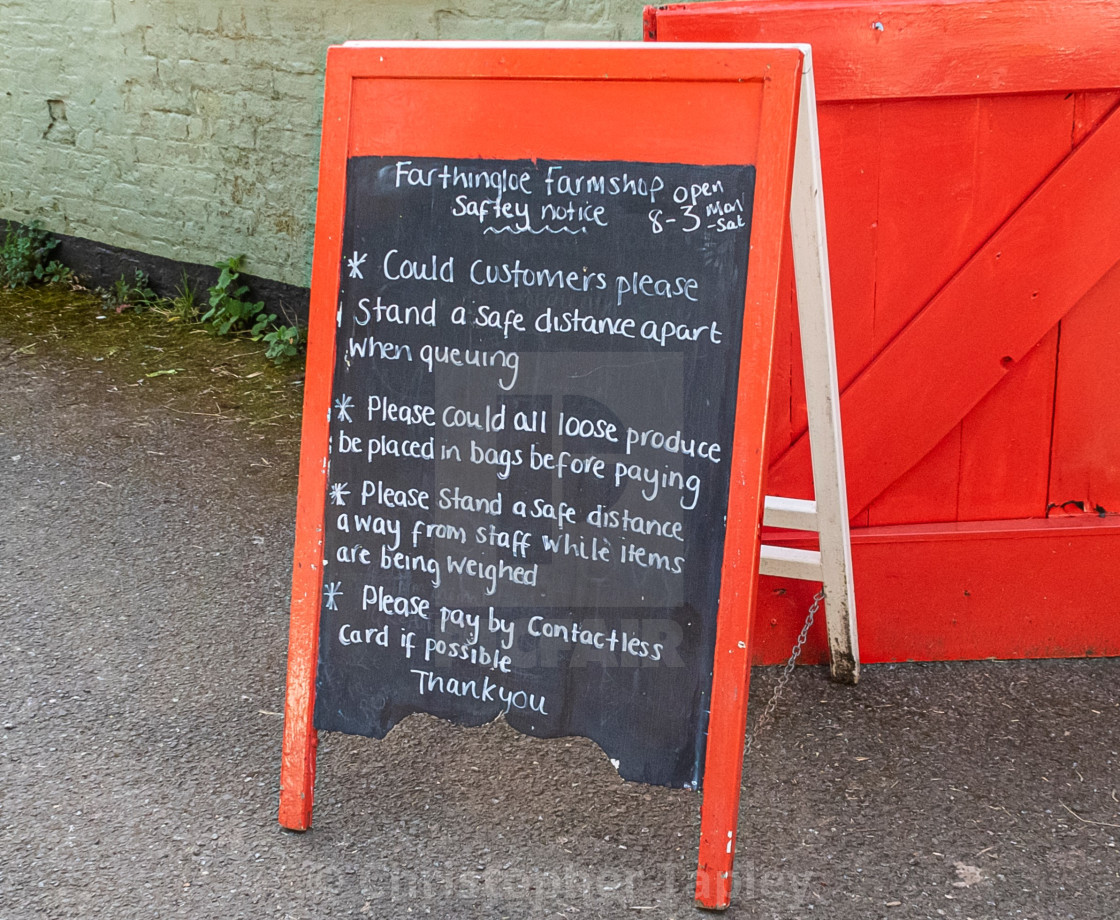 Farthingloe Farmshop open
Saftey notice 8-3 Mon
-Sat
* Could Customers please
Stand a safe distance apart
when queuing
* Please could all loose produce
be placed in bags before paying
* Please Stand a safe distance
away from staff while items
are being weighed
* Please pay by Contactless
Card if possible
Thankyou
PICFAIR
© Christopher Tapley